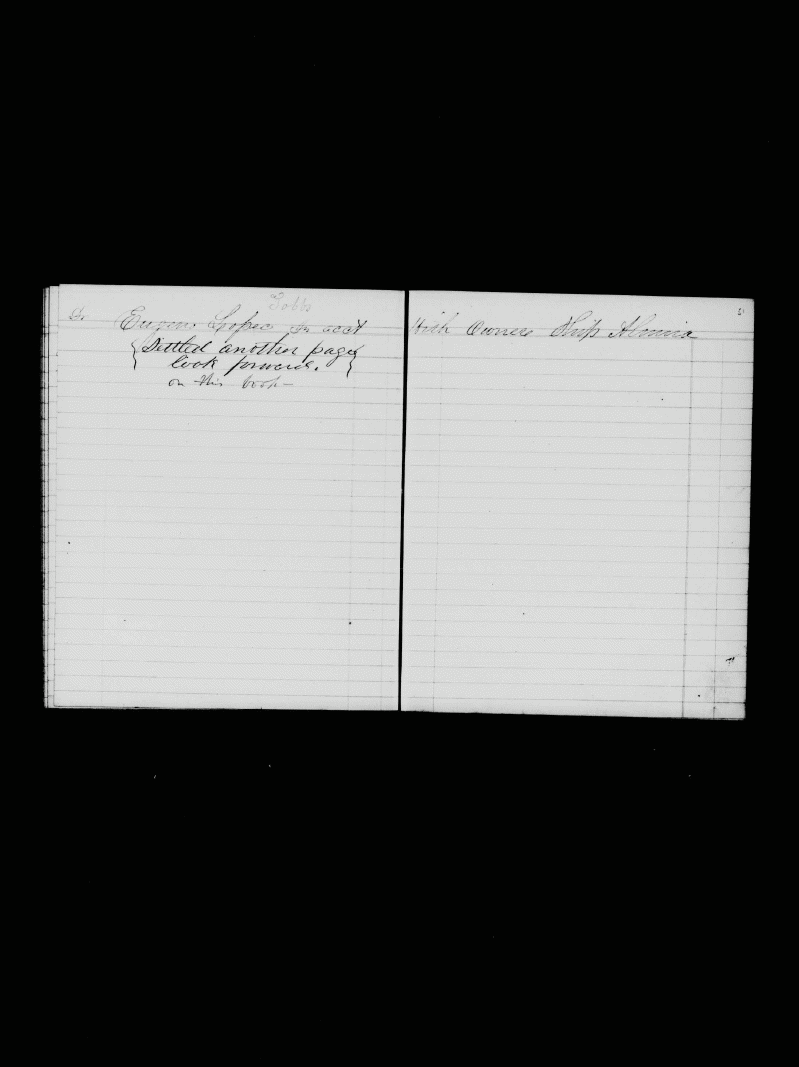 Tobbs
Dr Eugene Lopes in acct With Owners Ship Almira
Settled another page
look forward.
on this book—